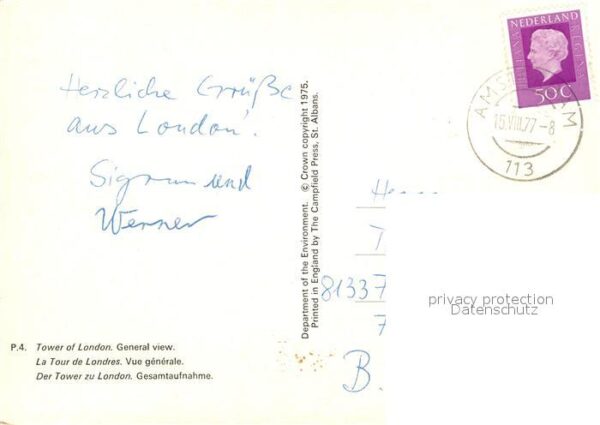 Herzliche Grüße
aus London!
Sigrun und
Werner
P.4. Tower of London. General view.
La Tour de Londres. Vue générale.
Der Tower zu London. Gesamtaufnahme.
Department of the Environment. © Crown copyright 1975.
Printed in England by The Campfield Press, St. Albans.
NEDERLAND
JULIANA REGINA
50 C
AMSTERDAM
15.VIII.77-8
113
81337
7
B.
privacy protection
Datenschutz